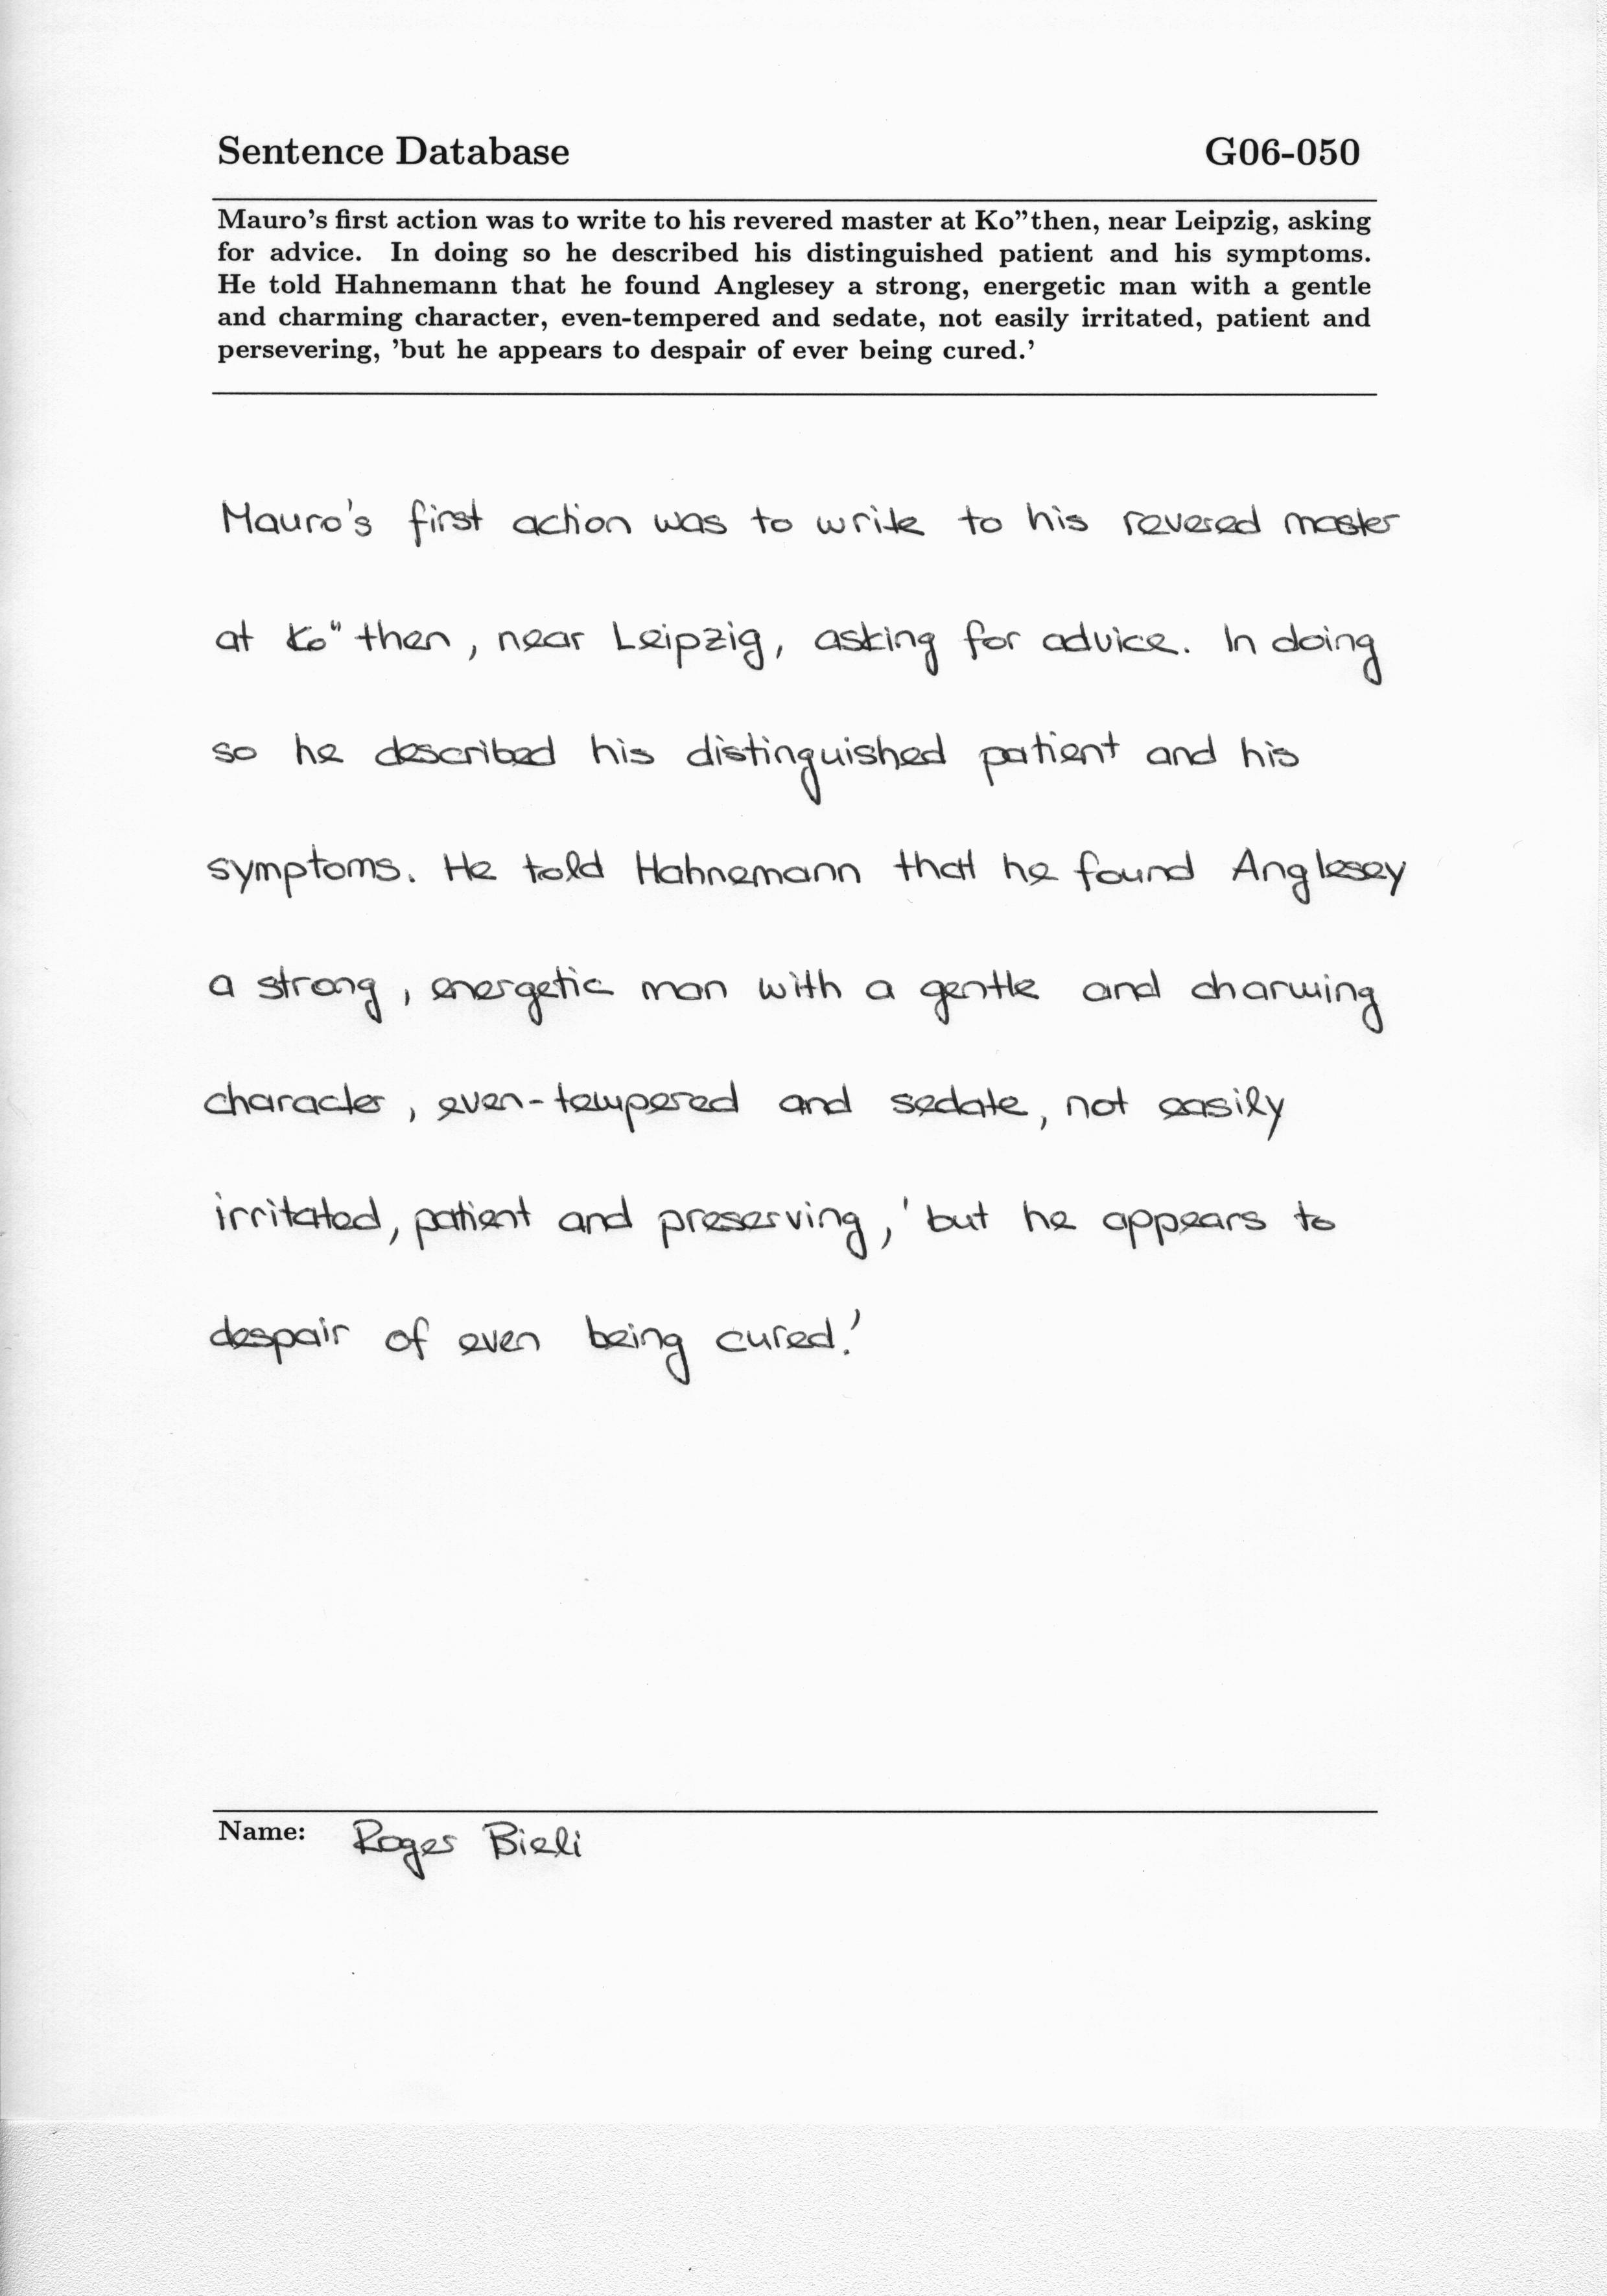 Sentence Database G06-050
Mauro's first action was to write to his revered master at Ko”then, near Leipzig, asking
for advice. In doing so he described his distinguished patient and his symptoms.
He told Hahnemann that he found Anglesey a strong, energetic man with a gentle
and charming character, even-tempered and sedate, not easily irritated, patient and
persevering, ’but he appears to despair of ever being cured.’
Mauro's first action was to write to his revered master
at Ko" then, near Leipzig, asking for advice. In doing
so he described his distinguished patient and his
symptoms. He told Hahnemann that he found Anglesey
a strong, energetic man with a gentle and charming
character, even-tempered and sedate, not easily
irritated, patient and preserving, 'but he appears to
despair of even being cured.'
Name: Roger Bieli